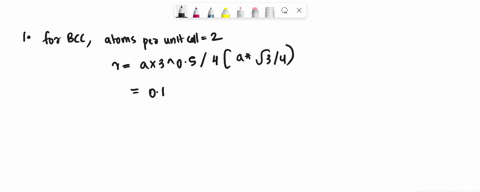 1. for BCC, atoms per unit cell = 2
r = a×3^0.5/4 ( a* √3/4)
= 0.1